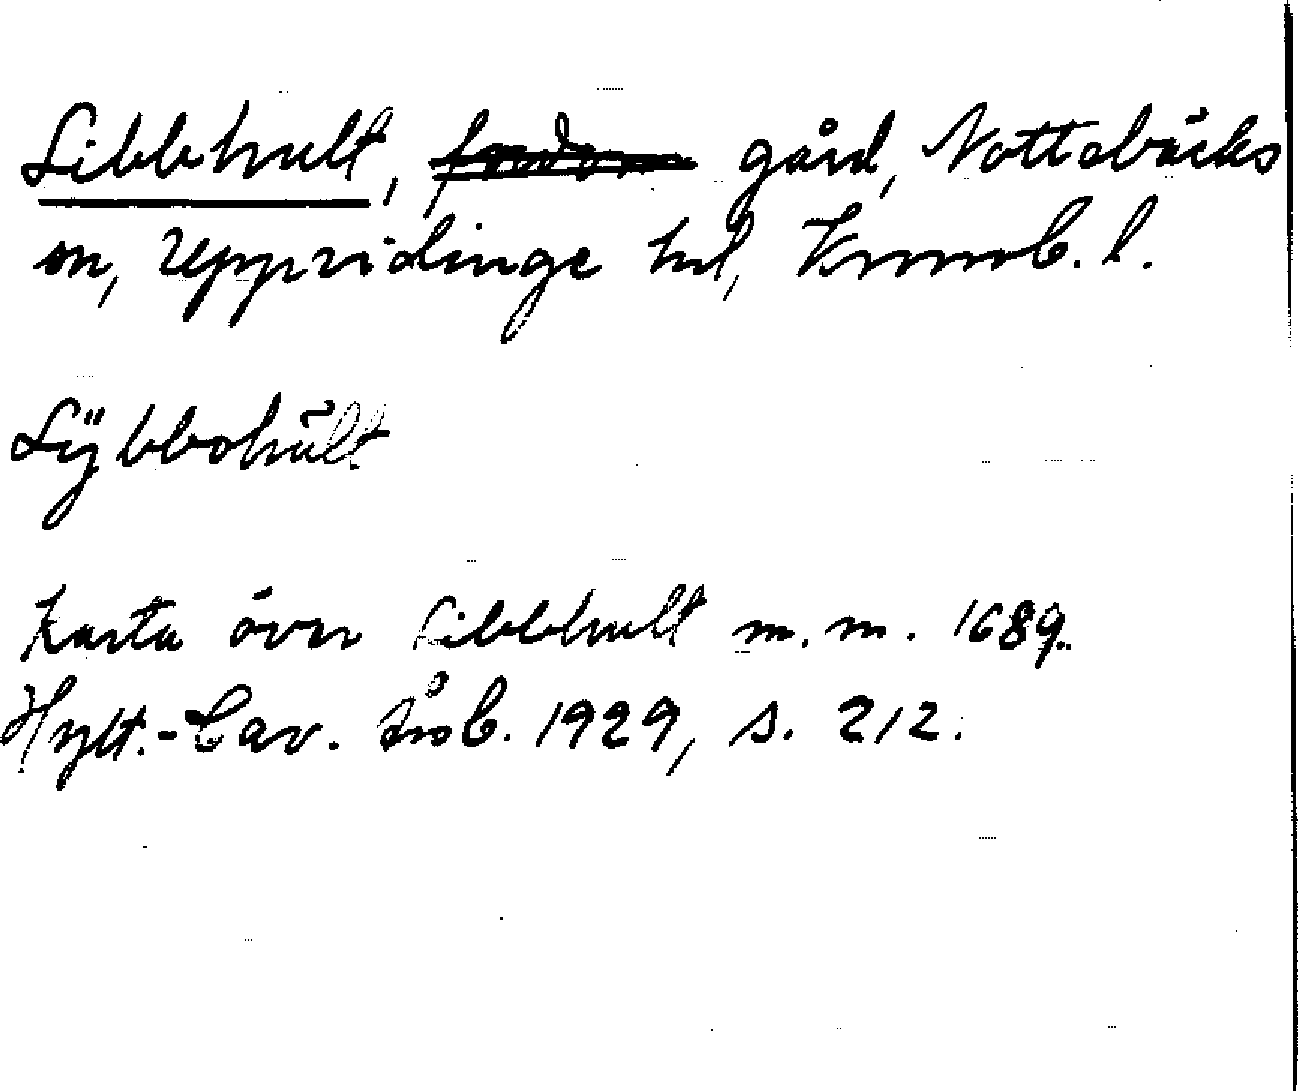 Libbhult, ~~fordom~~ gård, Nottebäcks
sn, Uppvidinge hd, Kronob. l.
Lÿbbohult
Karta över Libbhult m.m. 1689.
Hylt.-Cav. årsb. 1929, s. 212.